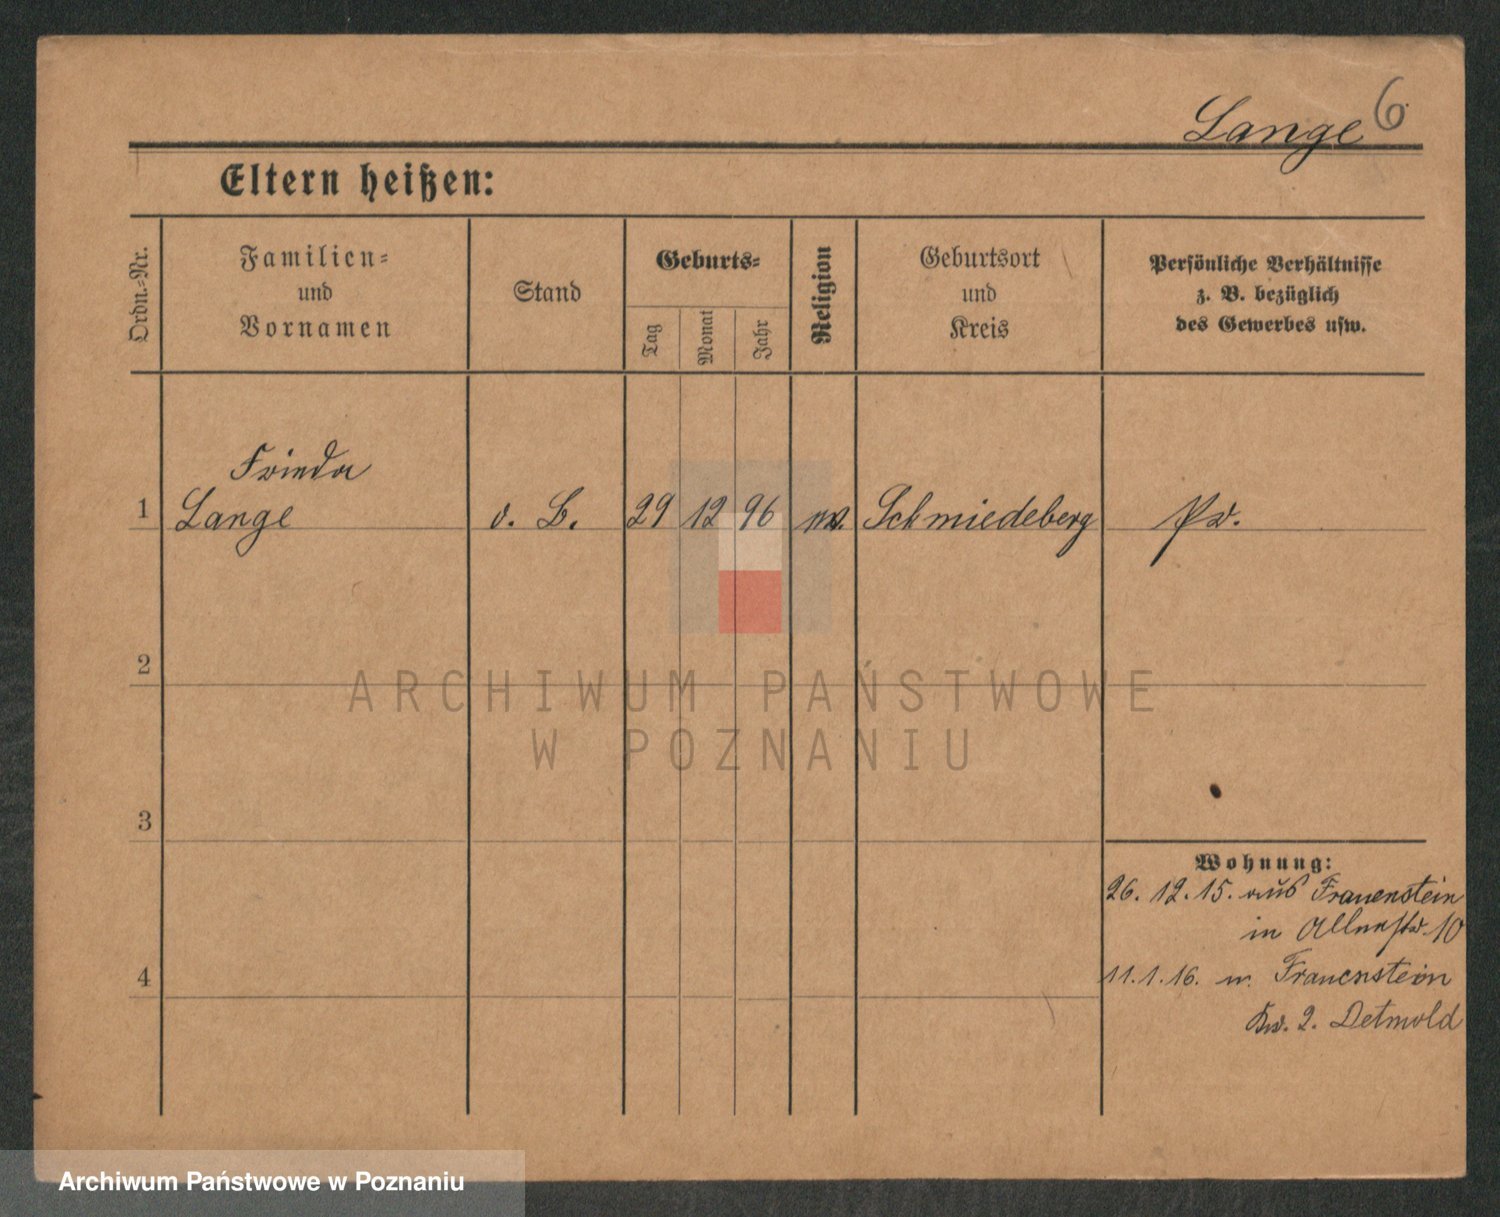 Lange 6.
Eltern heißen:
Ordn.-Nr.
Familien-
und
Vornamen
Stand
Geburts-
Tag
Monat
Jahr
Religion
Geburtsort
und
Kreis
Persönliche Verhältnisse
z. B. bezüglich
des Gewerbes usw.
Frieda
1 Lange o. B. 29 12 96 ev. Schmiedeberg Pr.
2
ARCHIWUM PAŃSTWOWE
W POZNANIU
3
Wohnung:
26. 12. 15. aus Frauenstein
in 10
4
11. 1. 16. n. Frauenstein
Kr. 2. Detmold
Archiwum Państwowe w Poznaniu